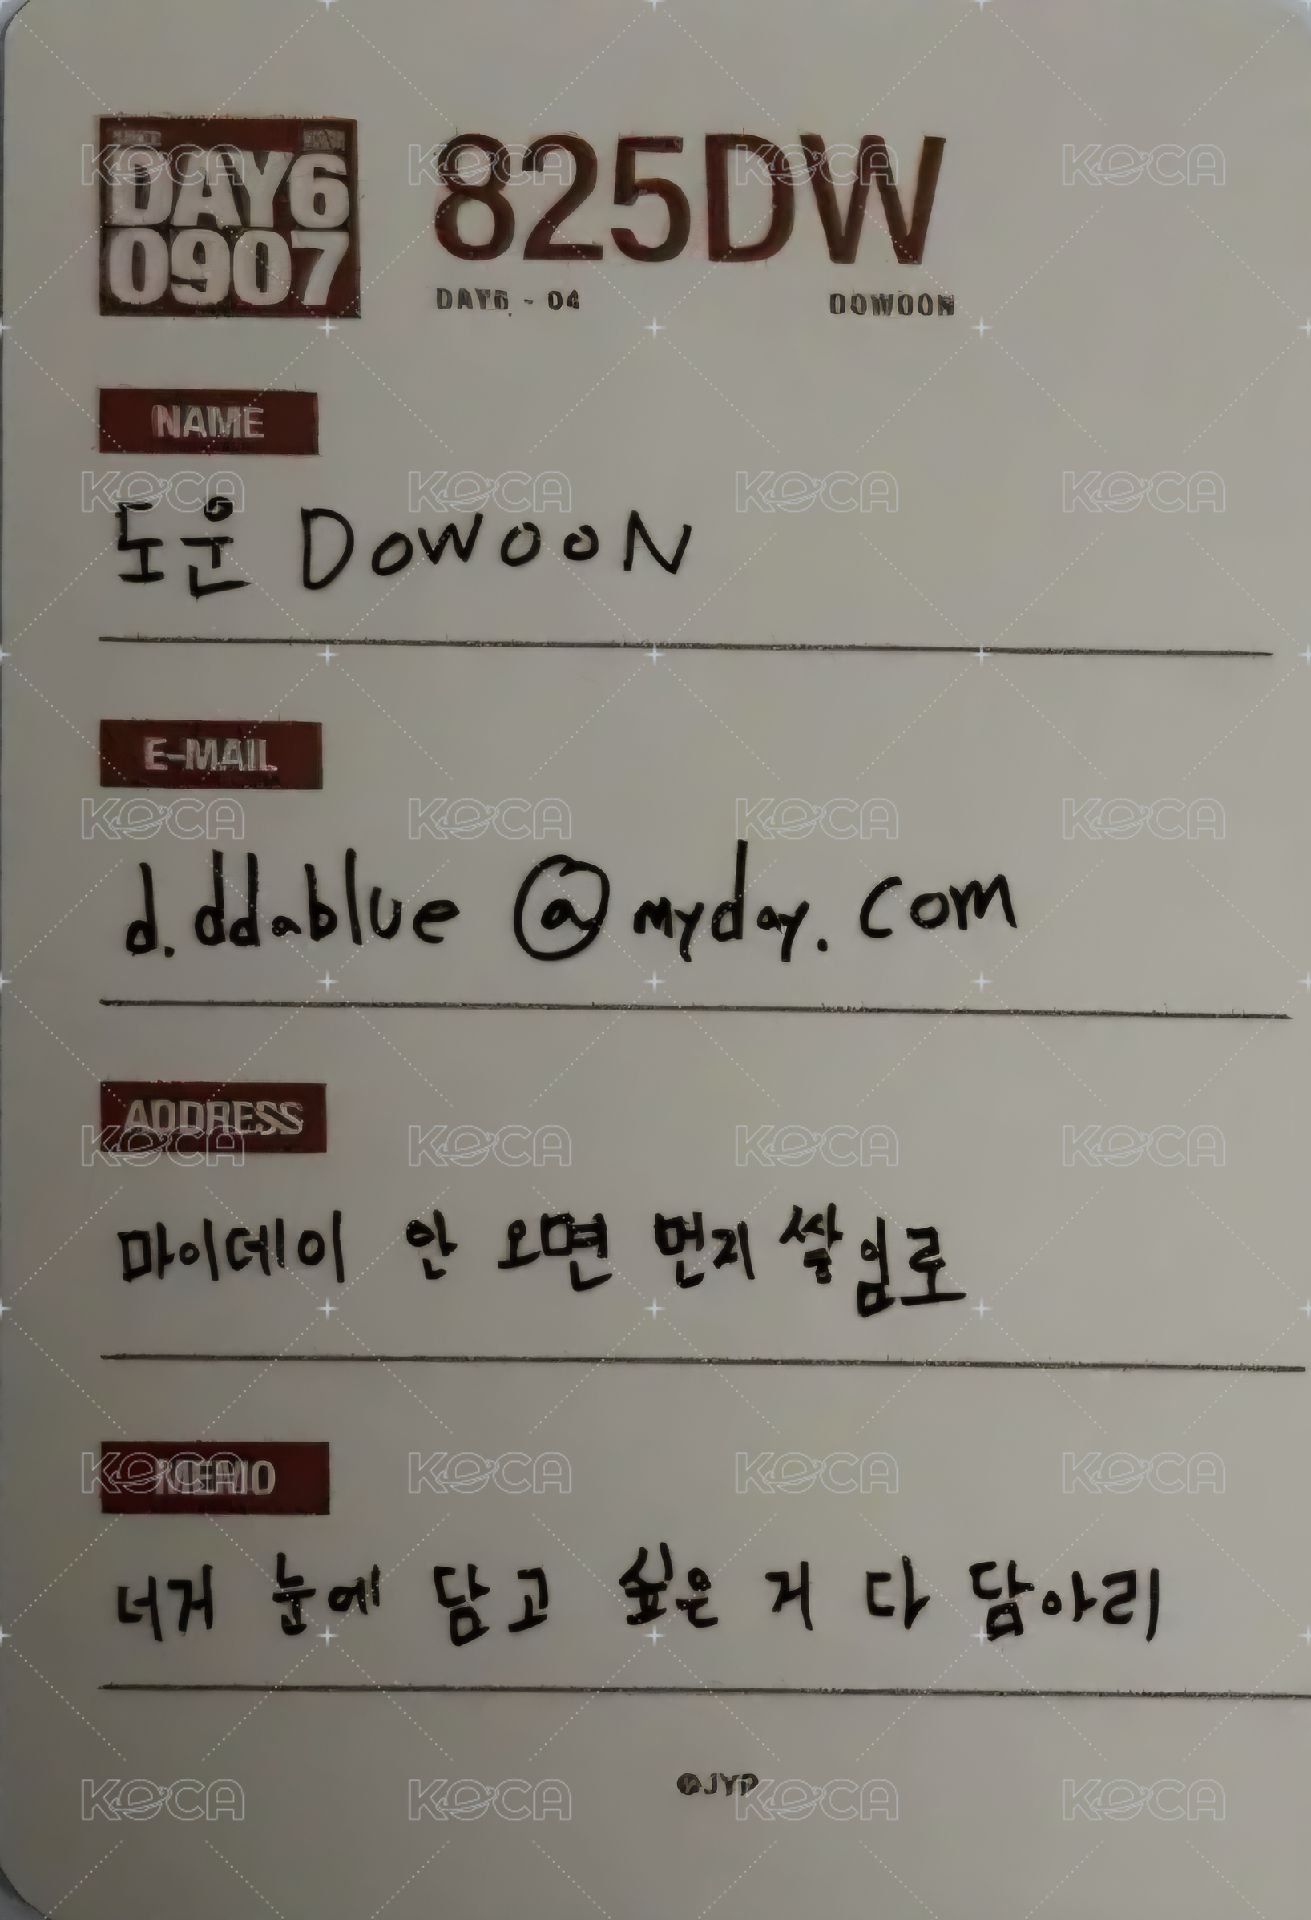 DAY6
0907
825DW
DAY6 - 04 DOWOON
NAME
도운 DOWOON
E-MAIL
d.ddablue@myday.com
ADDRESS
마이데이 안 오면 먼지 쌓일로
MEMO
너거 눈에 담고 싶은 거 다 담아리
©JYP
KOCA